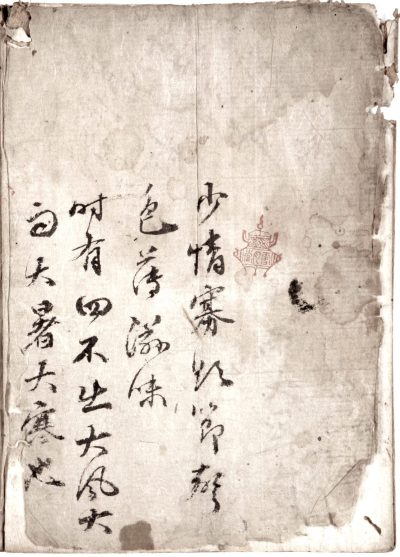 少情寡欲節聲
色薄滋味
時有四不出大風大
雨大暑大寒也